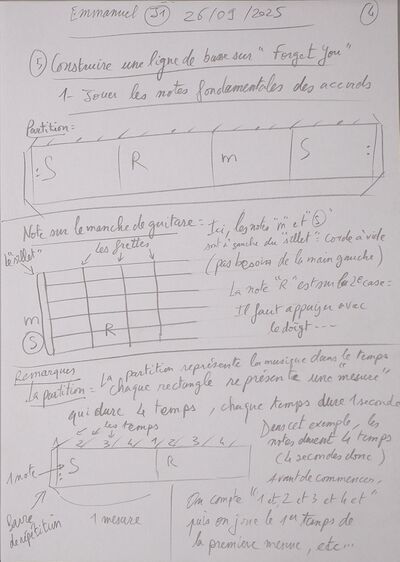 Emmanuel (J1) 26/09/2025 (4)
(5) Construire une ligne de basse sur "Forget You"
1- Jouer les notes fondamentales des accords
Partition =
S R m S
Note sur le manche de guitare =
Le "sillet"
les frettes
m
S
R
Ici, les notes "m" et "S"
sont à gauche du "sillet" = Corde à vide
(pas besoin de la main gauche)
La note "R" est sur la 2e case =
Il faut appuyer avec
le doigt ---
Remarques
La partition = La partition représente la musique dans le temps
chaque rectangle représente une "mesure"
qui dure 4 temps, chaque temps dure 1 seconde
les temps
1 2 3 4 1 2 3 4
1 note
S R
Barre
de répétition
1 mesure
Dans cet exemple, les
notes durent 4 temps
(4 secondes donc)
Avant de commencer,
On compte "1 et 2 et 3 et 4 et"
puis on joue le 1er temps de
la première mesure, etc...